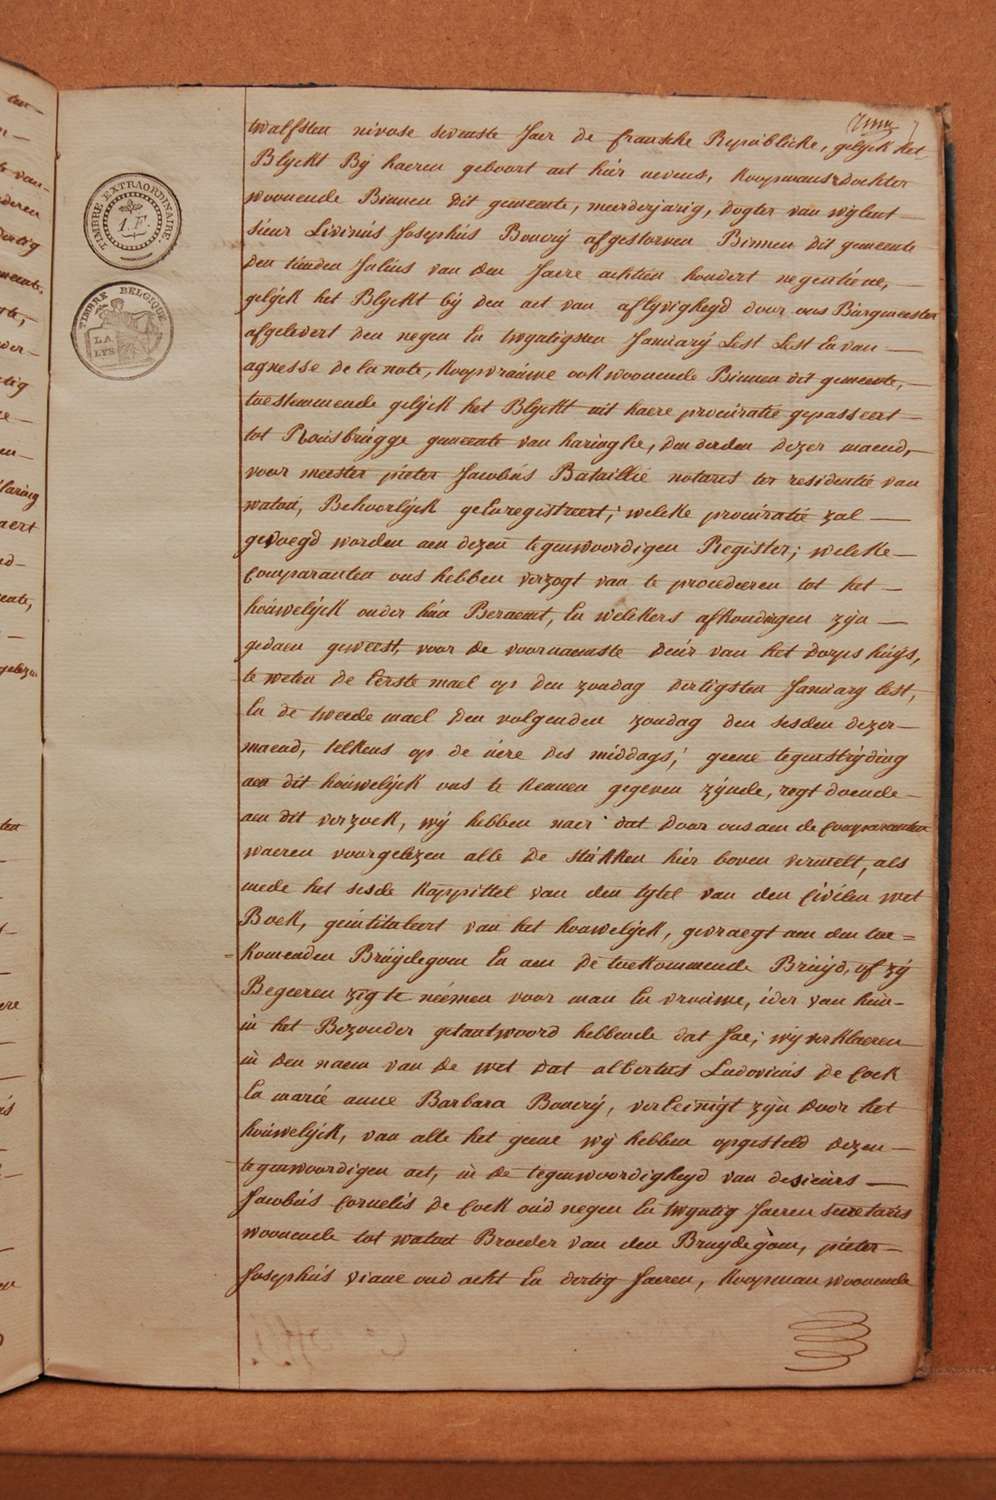 TIMBRE EXTRAORDINAIRE.
1.F.
TIMBRE BELGIQUE
LA
LYS
twalfsten nivose sevenste Jaer de fransche Republicke, gelyck het
Blyckt By haeren geboort act hier nevens, Koopmans Dochter
woonende Binnen Dit gemeente, meerderjarig, Dogter van wylent —
sieur Livinus Josephus Boucry afgestorven Binnen dit gemeente
den tienden Julius van den Jaere achtien hondert negentiene, —
gelyck het Blyckt by den act van aflyvigheyd door ons Burgmeester
afgelevert den negen En twyntigsten January Lest Lest En van —
agnesse De la note, Koopvrauwe ook woonende Binnen dit gemeente, —
toestemmende gelyck het Blyckt uit haere procuratie gepasseert —
tot Rousbrugge gemeente van haringhe, den derden dezer maend, —
voor meester pieter Jacobus Bataillie notaris ter residentie van
watou, Behoorlyck geEnregistreert; welcke procuratie zal —
gevoegd worden aen dezen tegenwoordigen Register; welcke —
Comparanten ons hebben verzogt van te procederen tot het —
houwelyck onder hun Beraemt, En welckers afkondingen zyn —
gedaen geweest, voor de voornaemste deur van het dorps huys,
te weten de Eerste mael op den zondag dertigsten January lest,
En de tweede mael den volgenden zondag den sesden dezer —
maend, telkens op de uere des middags; geene tegenstryding
aen dit houwelyck ons te kennen gegeven zynde, regt doende —
aen dit verzoek, wy hebben naer dat door ons aen de Comparanten
waeren voorgelezen alle de stukken hier boven vermelt, als
mede het sesde kappittel van den tytel van den Civilen wet
Boek, geintituleert van het houwelyck, gevraegt aen den toe=
=komenden Bruydegom En aen de toekommende Bruyd, of zy
Begeeren zig te neemen voor man En vrouwe, ider van hun —
in het Bezonder geantwoord hebbende dat Jae; wy verklaeren —
in den naem van de wet dat albertus Ludovicus De Cock
En marie anne Barbara Boucry, verEenigt zyn door het
houwelyck, van alle het geene wy hebben opgesteld dezen —
tegenwoordigen act, in de tegenwoordigheyd van de sieurs —
Jacobus Cornelis De Cock oud negen En twyntig Jaeren secretaris
woonende tot watou Broeder van den Bruydegom, pieter —
Josephus Viane oud acht En dertig Jaeren, Koopman woonende